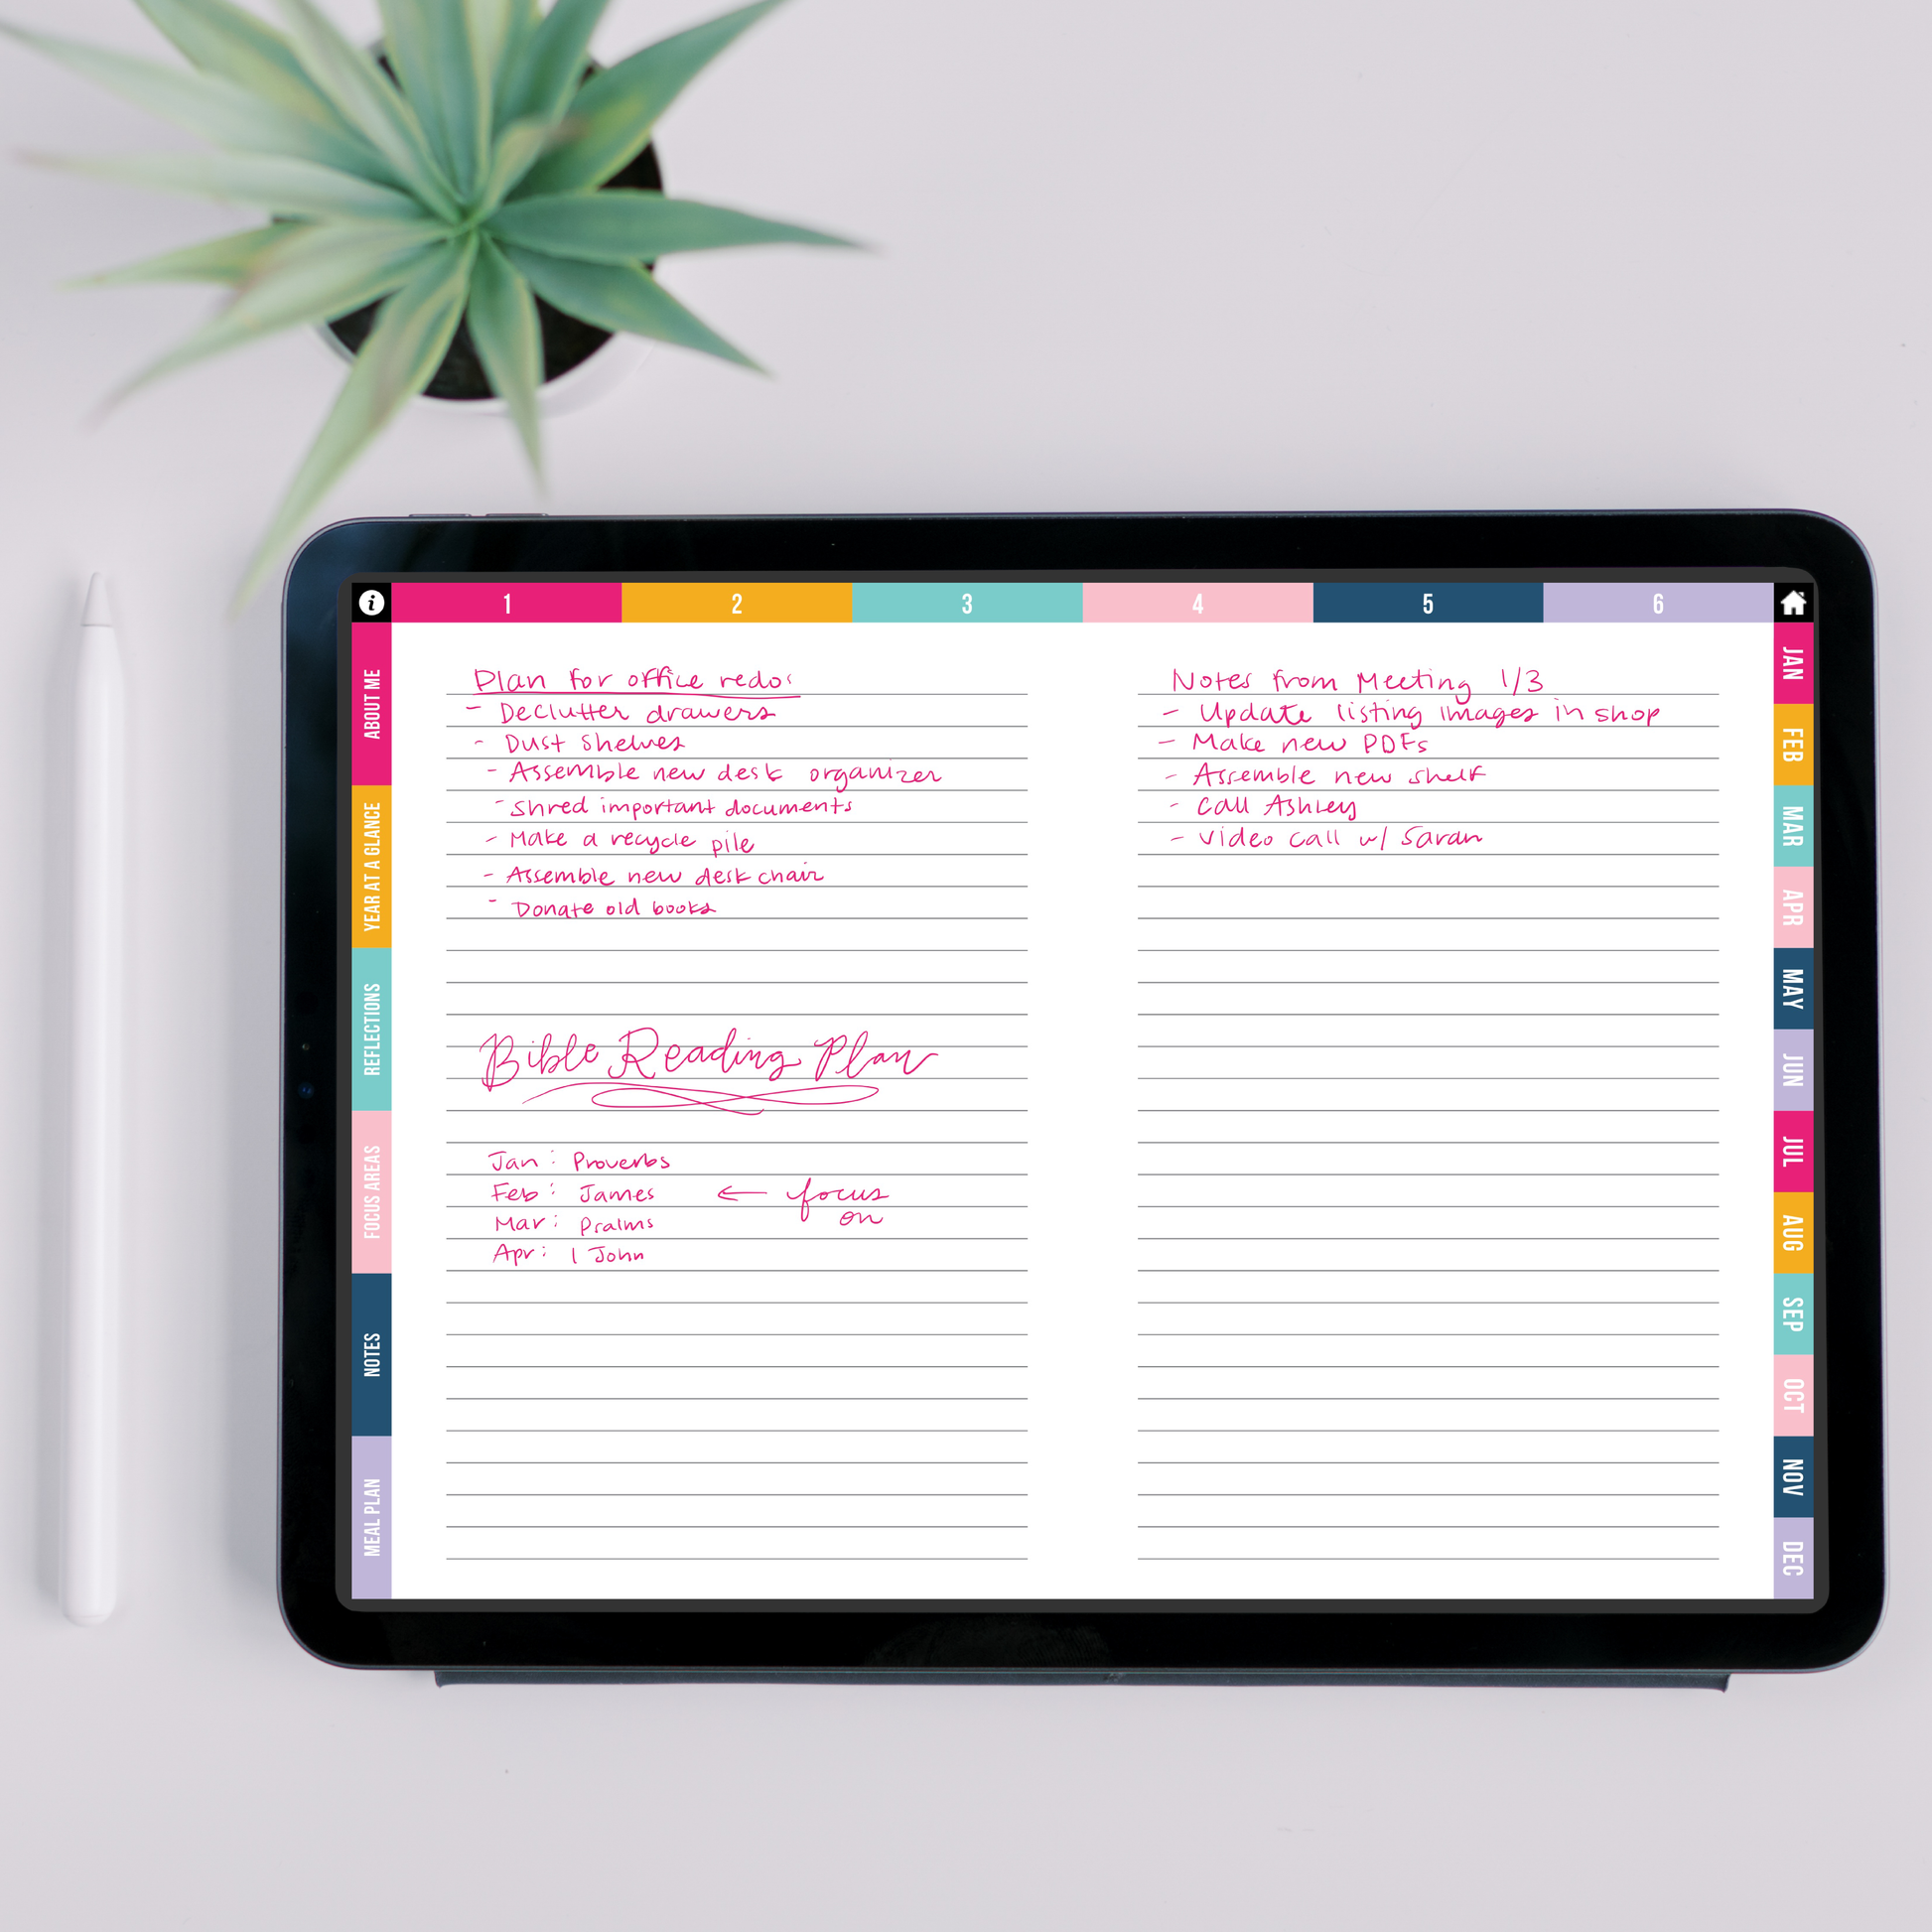 1 2 3 4 5 6
ABOUT ME
YEAR AT A GLANCE
REFLECTIONS
FOCUS AREAS
NOTES
MEAL PLAN
Plan for office redo:
- Declutter drawers
- Dust Shelves
- Assemble new desk organizer
- Shred important documents
- Make a recycle pile
- Assemble new desk chair
- Donate old books
Bible Reading Plan
Jan: Proverbs
Feb: James ← focus
on
Mar: Psalms
Apr: 1 John
Notes from Meeting 1/3
- Update listing images in shop
- Make new PDFs
- Assemble new shelf
- Call Ashley
- Video call w/ Sarah
JAN
FEB
MAR
APR
MAY
JUN
JUL
AUG
SEP
OCT
NOV
DEC